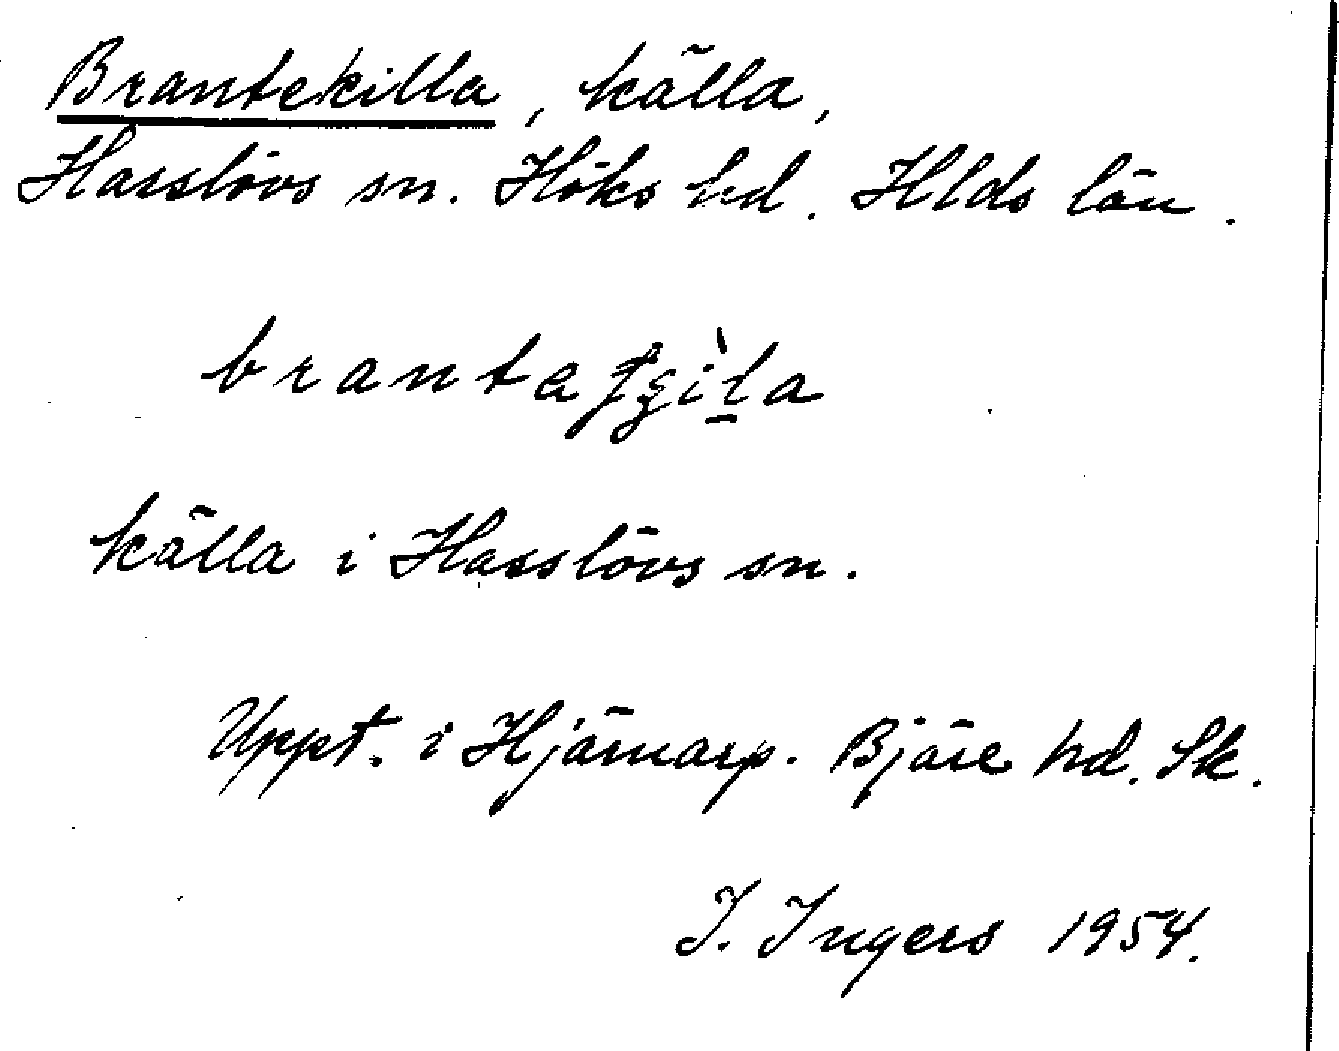 Brantekilla, källa,
Hasslövs sn. Höks hd. Hlds län.
källa i Hasslövs sn.
Uppt. i Hjärnarp. Bjäre hd. Sk.
I. Ingers 1954.